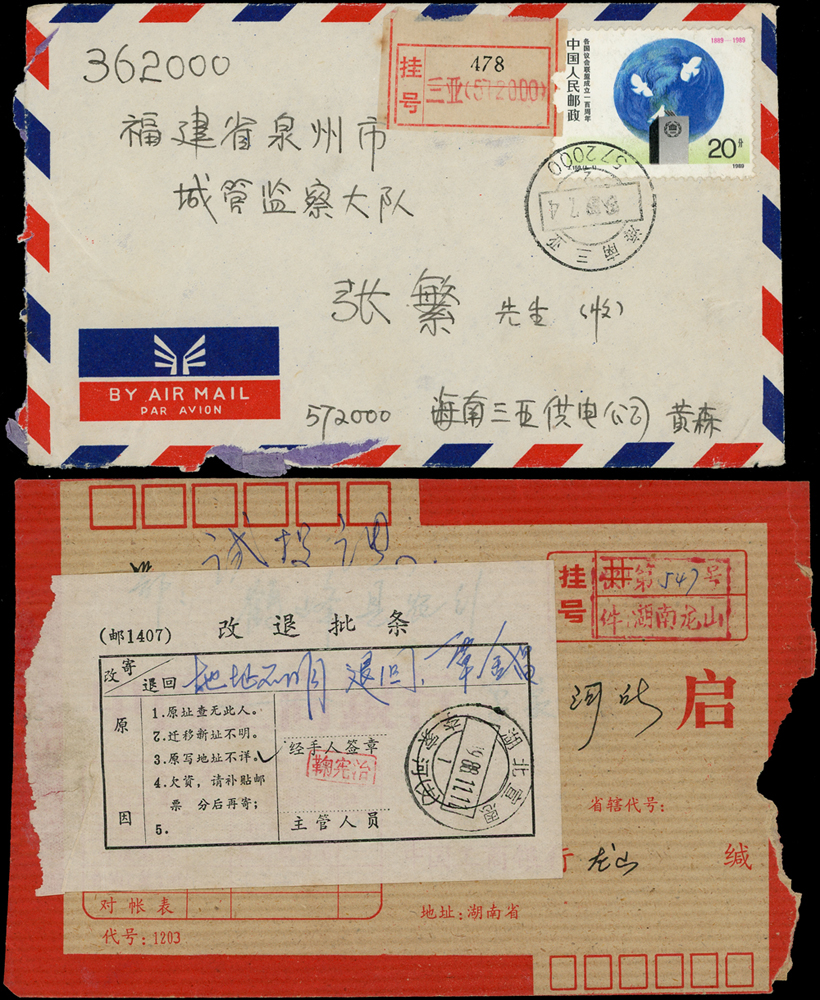 362000
福建省泉州市
城管监察大队
张繁 先生 (收)
572000 海南三亚供电公司 黄森
挂号
478
三亚(572000)
1889—1989
各国议会联盟成立一百周年
中国人民邮政
20分
1989
572000
海南三亚
BY AIR MAIL
PAR AVION
试投
挂号
第547号
件 湖南龙山
启
省辖代号:
龙山
缄
地址:湖南省
对帐表
代号:1203
(邮1407)
改退批条
改寄
退回
地址不明 退回
原因
1.原址查无此人。
2.迁移新址不明。
3.原写地址不详。
4.欠资,请补贴邮
票 分后再寄;
5.
经手人签章
鞠宪治
主管人员